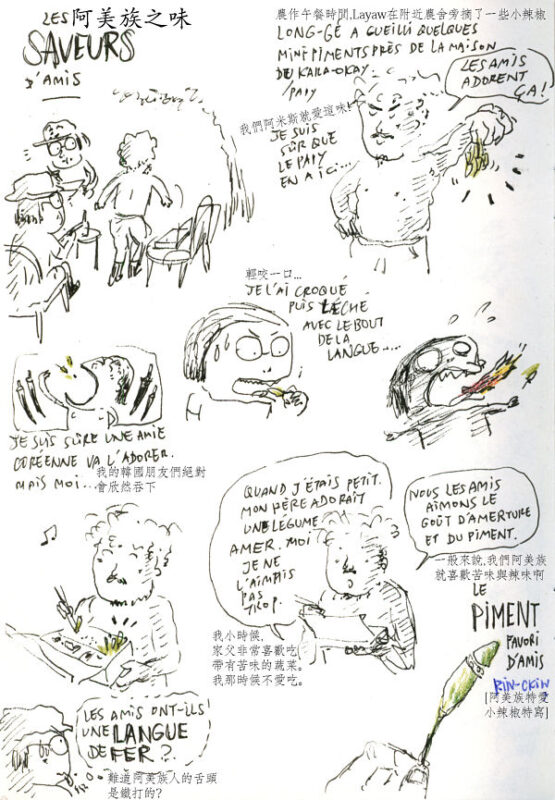 LES 阿美族之味
SAVEURS
D'AMIS
農作午餐時間,Layaw在附近農舍旁摘了一些小辣椒
LONG-GÉ A CUEILLI QUELQUES
MINI PIMENTS PRÈS DE LA MAISON
DU KAKA-OKAY
/PAPY
LES AMIS
ADORENT
ÇA!
我們阿米斯就愛這味!
JE SUIS
SÛR QUE
LE PAPY
EN A ICI...
輕咬一口...
JE L'AI CROQUÉ
PUIS LÉCHÉ
AVEC LE BOUT
DE LA
LANGUE.....
JE SUIS SÛRE UNE AMIE
CORÉENNE VA L'ADORER.
MAIS MOI...
我的韓國朋友們絕對
會欣然吞下
QUAND J'ÉTAIS PETIT.
MON PÈRE ADORAIT
UNE LÉGUME
AMER. MOI
JE NE
L'AIMAIS
PAS
TROP.
我小時候,
家父非常喜歡吃
帶有苦味的蔬菜。
我那時候不愛吃。
NOUS LES AMIS
AIMONS LE
GOÛT D'AMERTURE
ET DU PIMENT.
一般來說,我們阿美族
就喜歡苦味與辣味啊
LE
PIMENT
FAVORI
D'AMIS
RIN-CKIN
[阿美族特愛
小辣椒特寫]
LES AMIS ONT-ILS
UNE LANGUE
DE FER?
難道阿美族人的舌頭
是鐵打的?